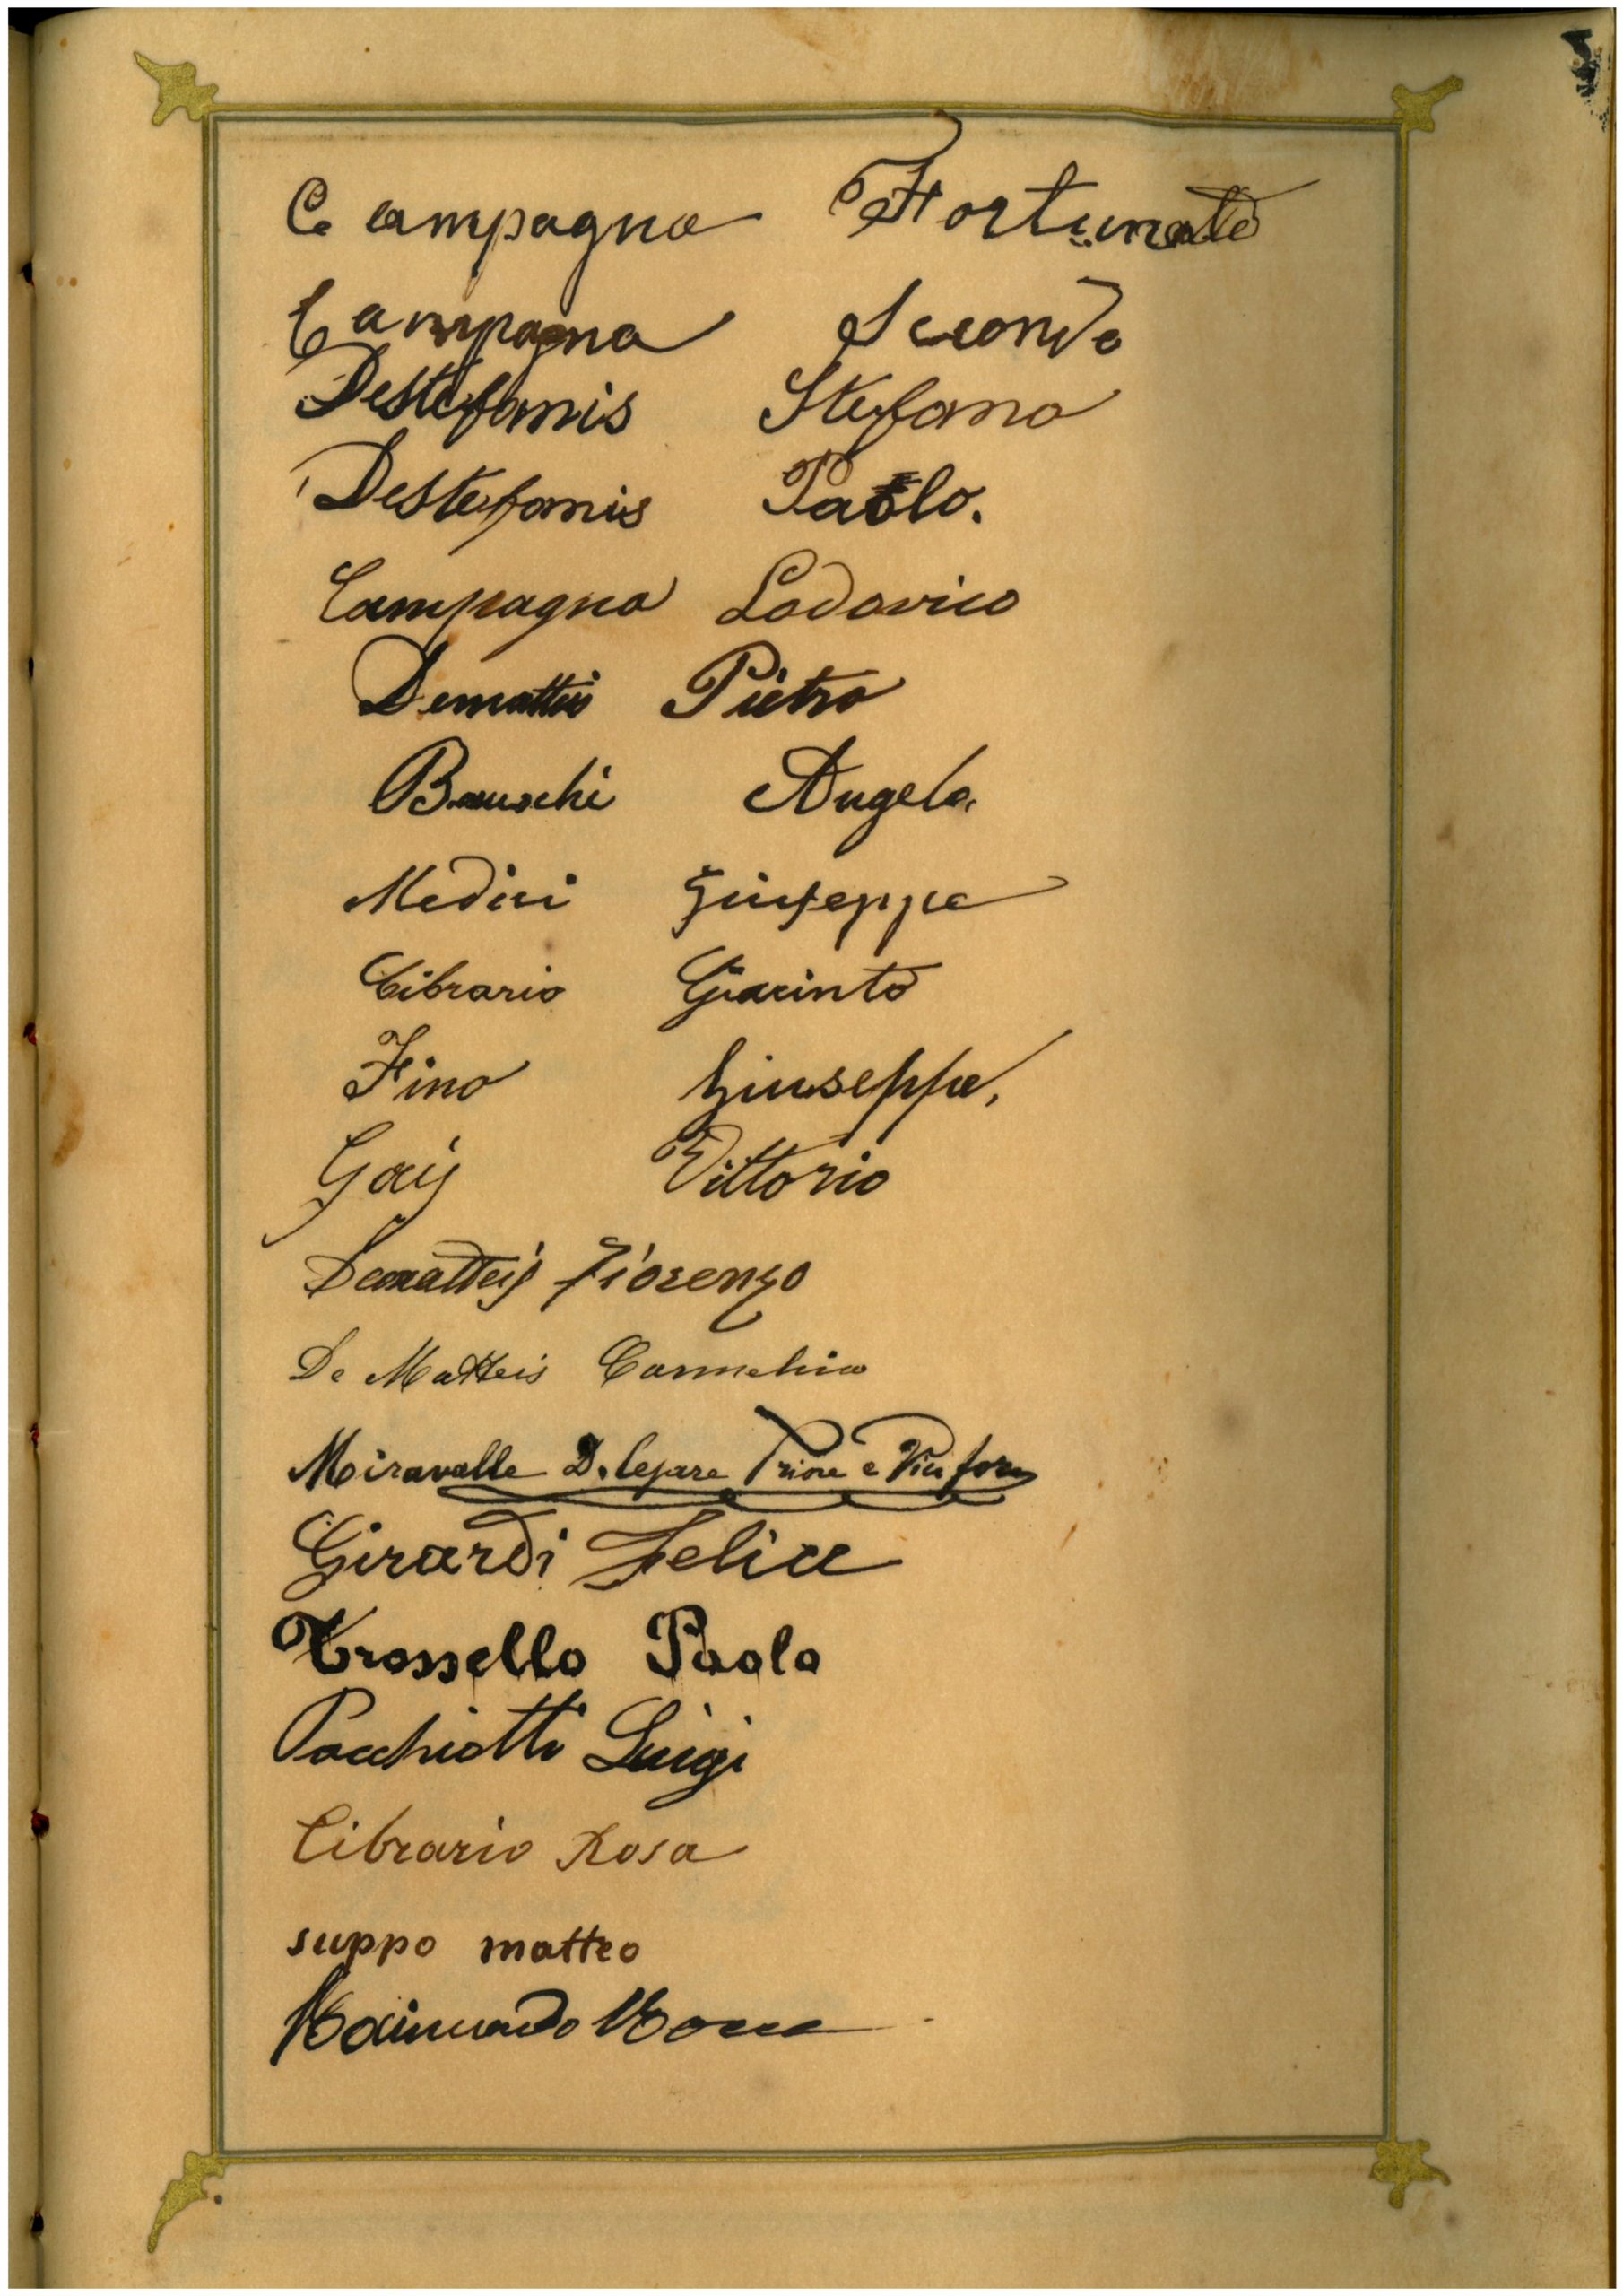 Campagna Fortunato
Campagna Secondo
Destefanis Stefano
Destefanis Paolo.
Campagna Lodovico
Dematteis Pietro
Angela
Medici Giuseppe
Cibrario Giacinto
Fino Giuseppe,
Gaij Vittorio
Dematteis Fiorenzo
De Matteis
Miravalle D. Cesare Priore e Vic. for.
Girardi Felice
Trossello Paolo
Pacchiotti Luigi
Cibrario Rosa
suppo matteo